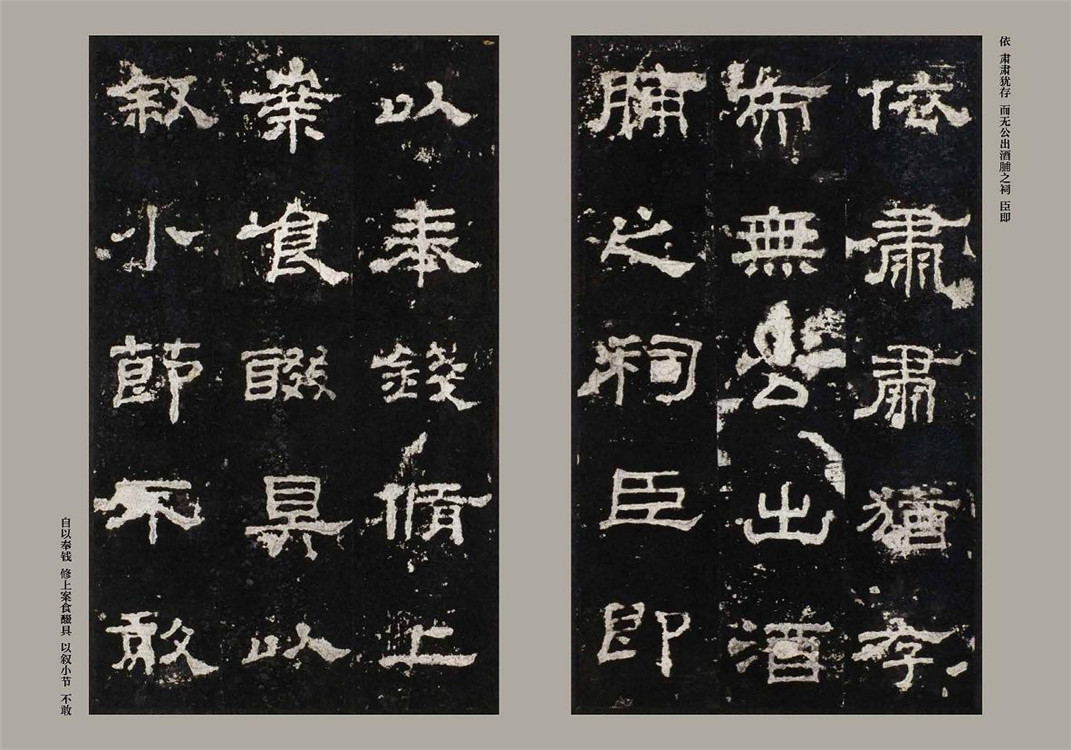 依 肃肃犹存 而无公出酒脯之祠 臣即
依肅肅猶存
而無公出酒
脯之祠臣即
以奉錢脩上
案食醊具以
叙小節不敢
自以奉钱 修上案食醊具 以叙小节 不敢